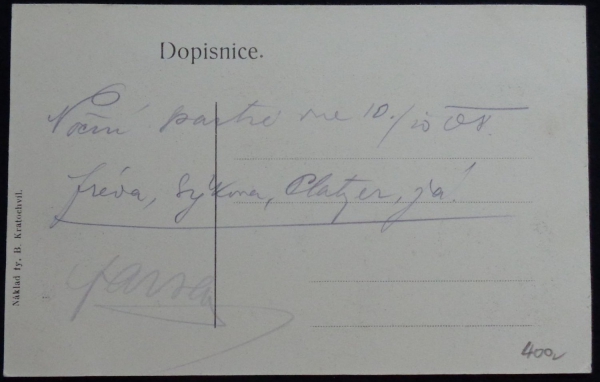 Dopisnice.
Noční partie dne 10./10 08.
Fréda, Sýkora, Platzer, já!
Náklad fy. B. Kratochvíl.
400,-